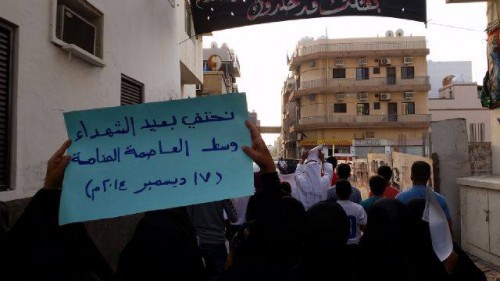 نحتفي بعيد الشهداء
وسط العاصمة المنامة
(١٧ ديسمبر ٢٠١٤م)